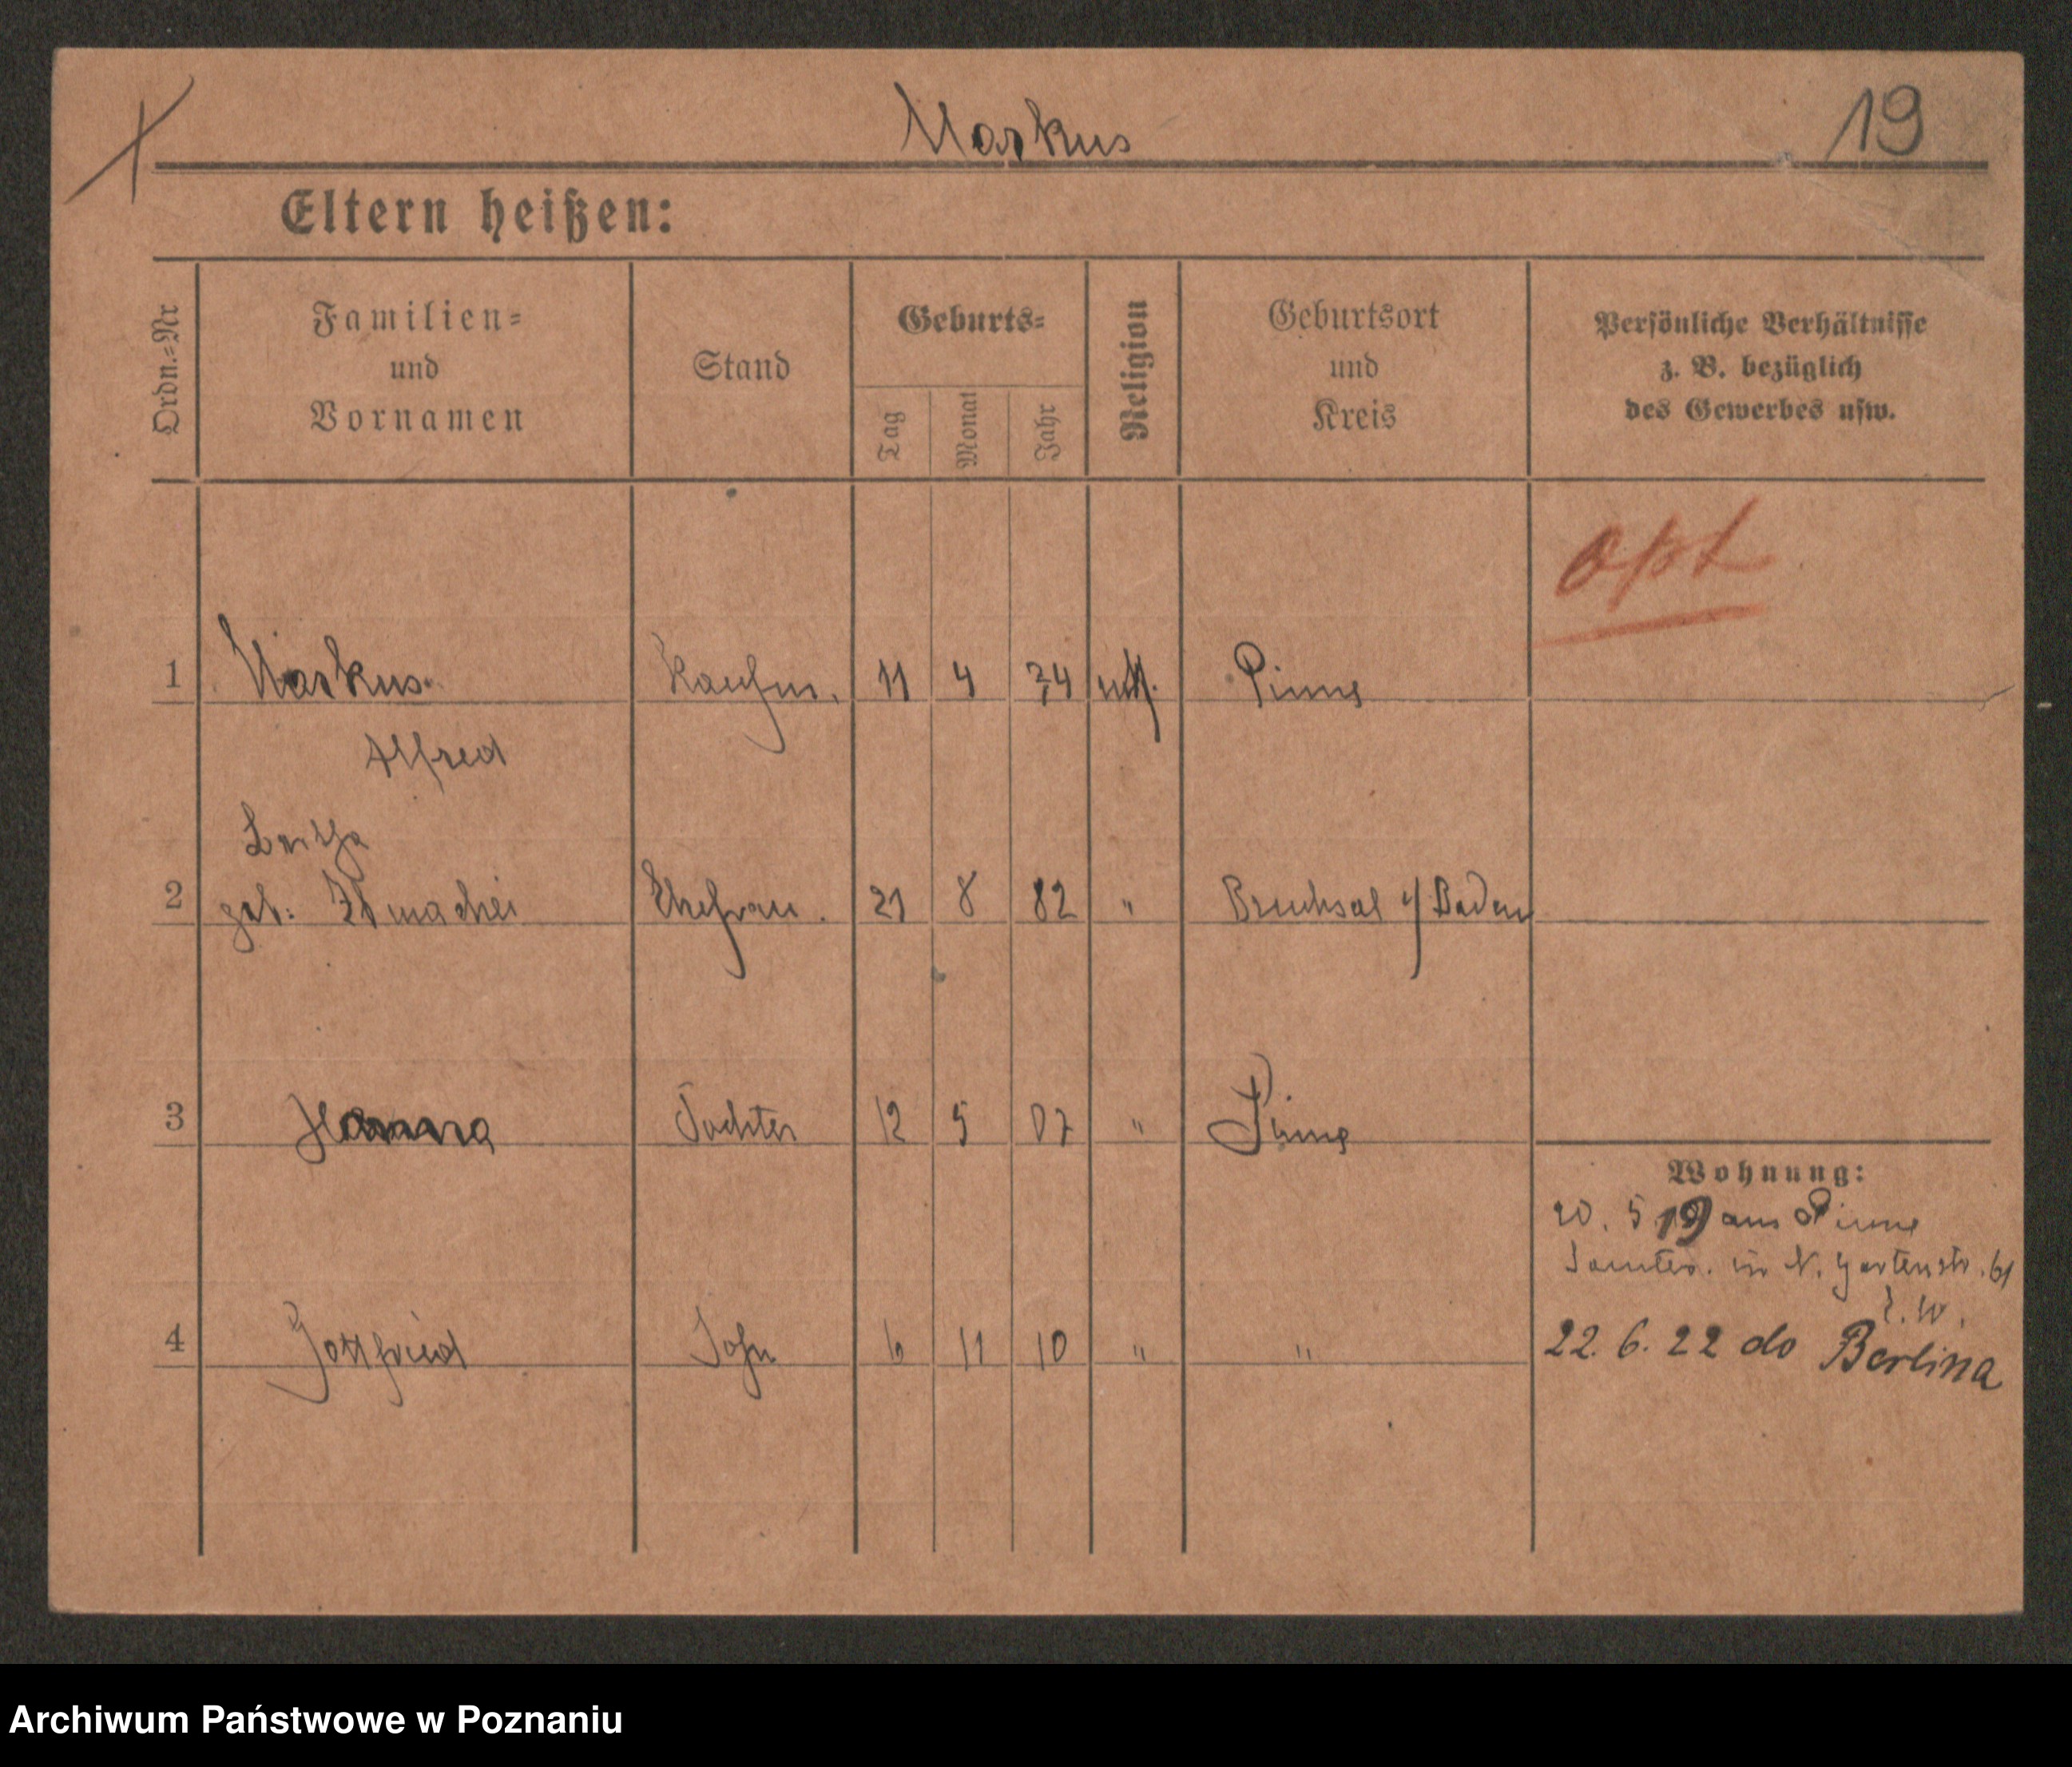 Markus
19
Eltern heißen:
Ordn.=Nr
Familien=
und
Vornamen
Stand
Geburts=
Tag
Monat
Jahr
Religion
Geburtsort
und
Kreis
Persönliche Verhältnisse
z. B. bezüglich
des Gewerbes usw.
opt
1 Markus Kaufm. 11 4 74 Pinne
Alfred
2 geb. Ehefrau. 21 8 82 " Bruchsal i/ Baden
3 Hanna Tochter 12 5 07 " Pinne
Wohnung:
20. 5 19 aus Pinne
Samter. in N. Gartenstr. 61
4 Gottfried Sohn 6 11 10 " "
22. 6. 22 do Berlina
Archiwum Państwowe w Poznaniu